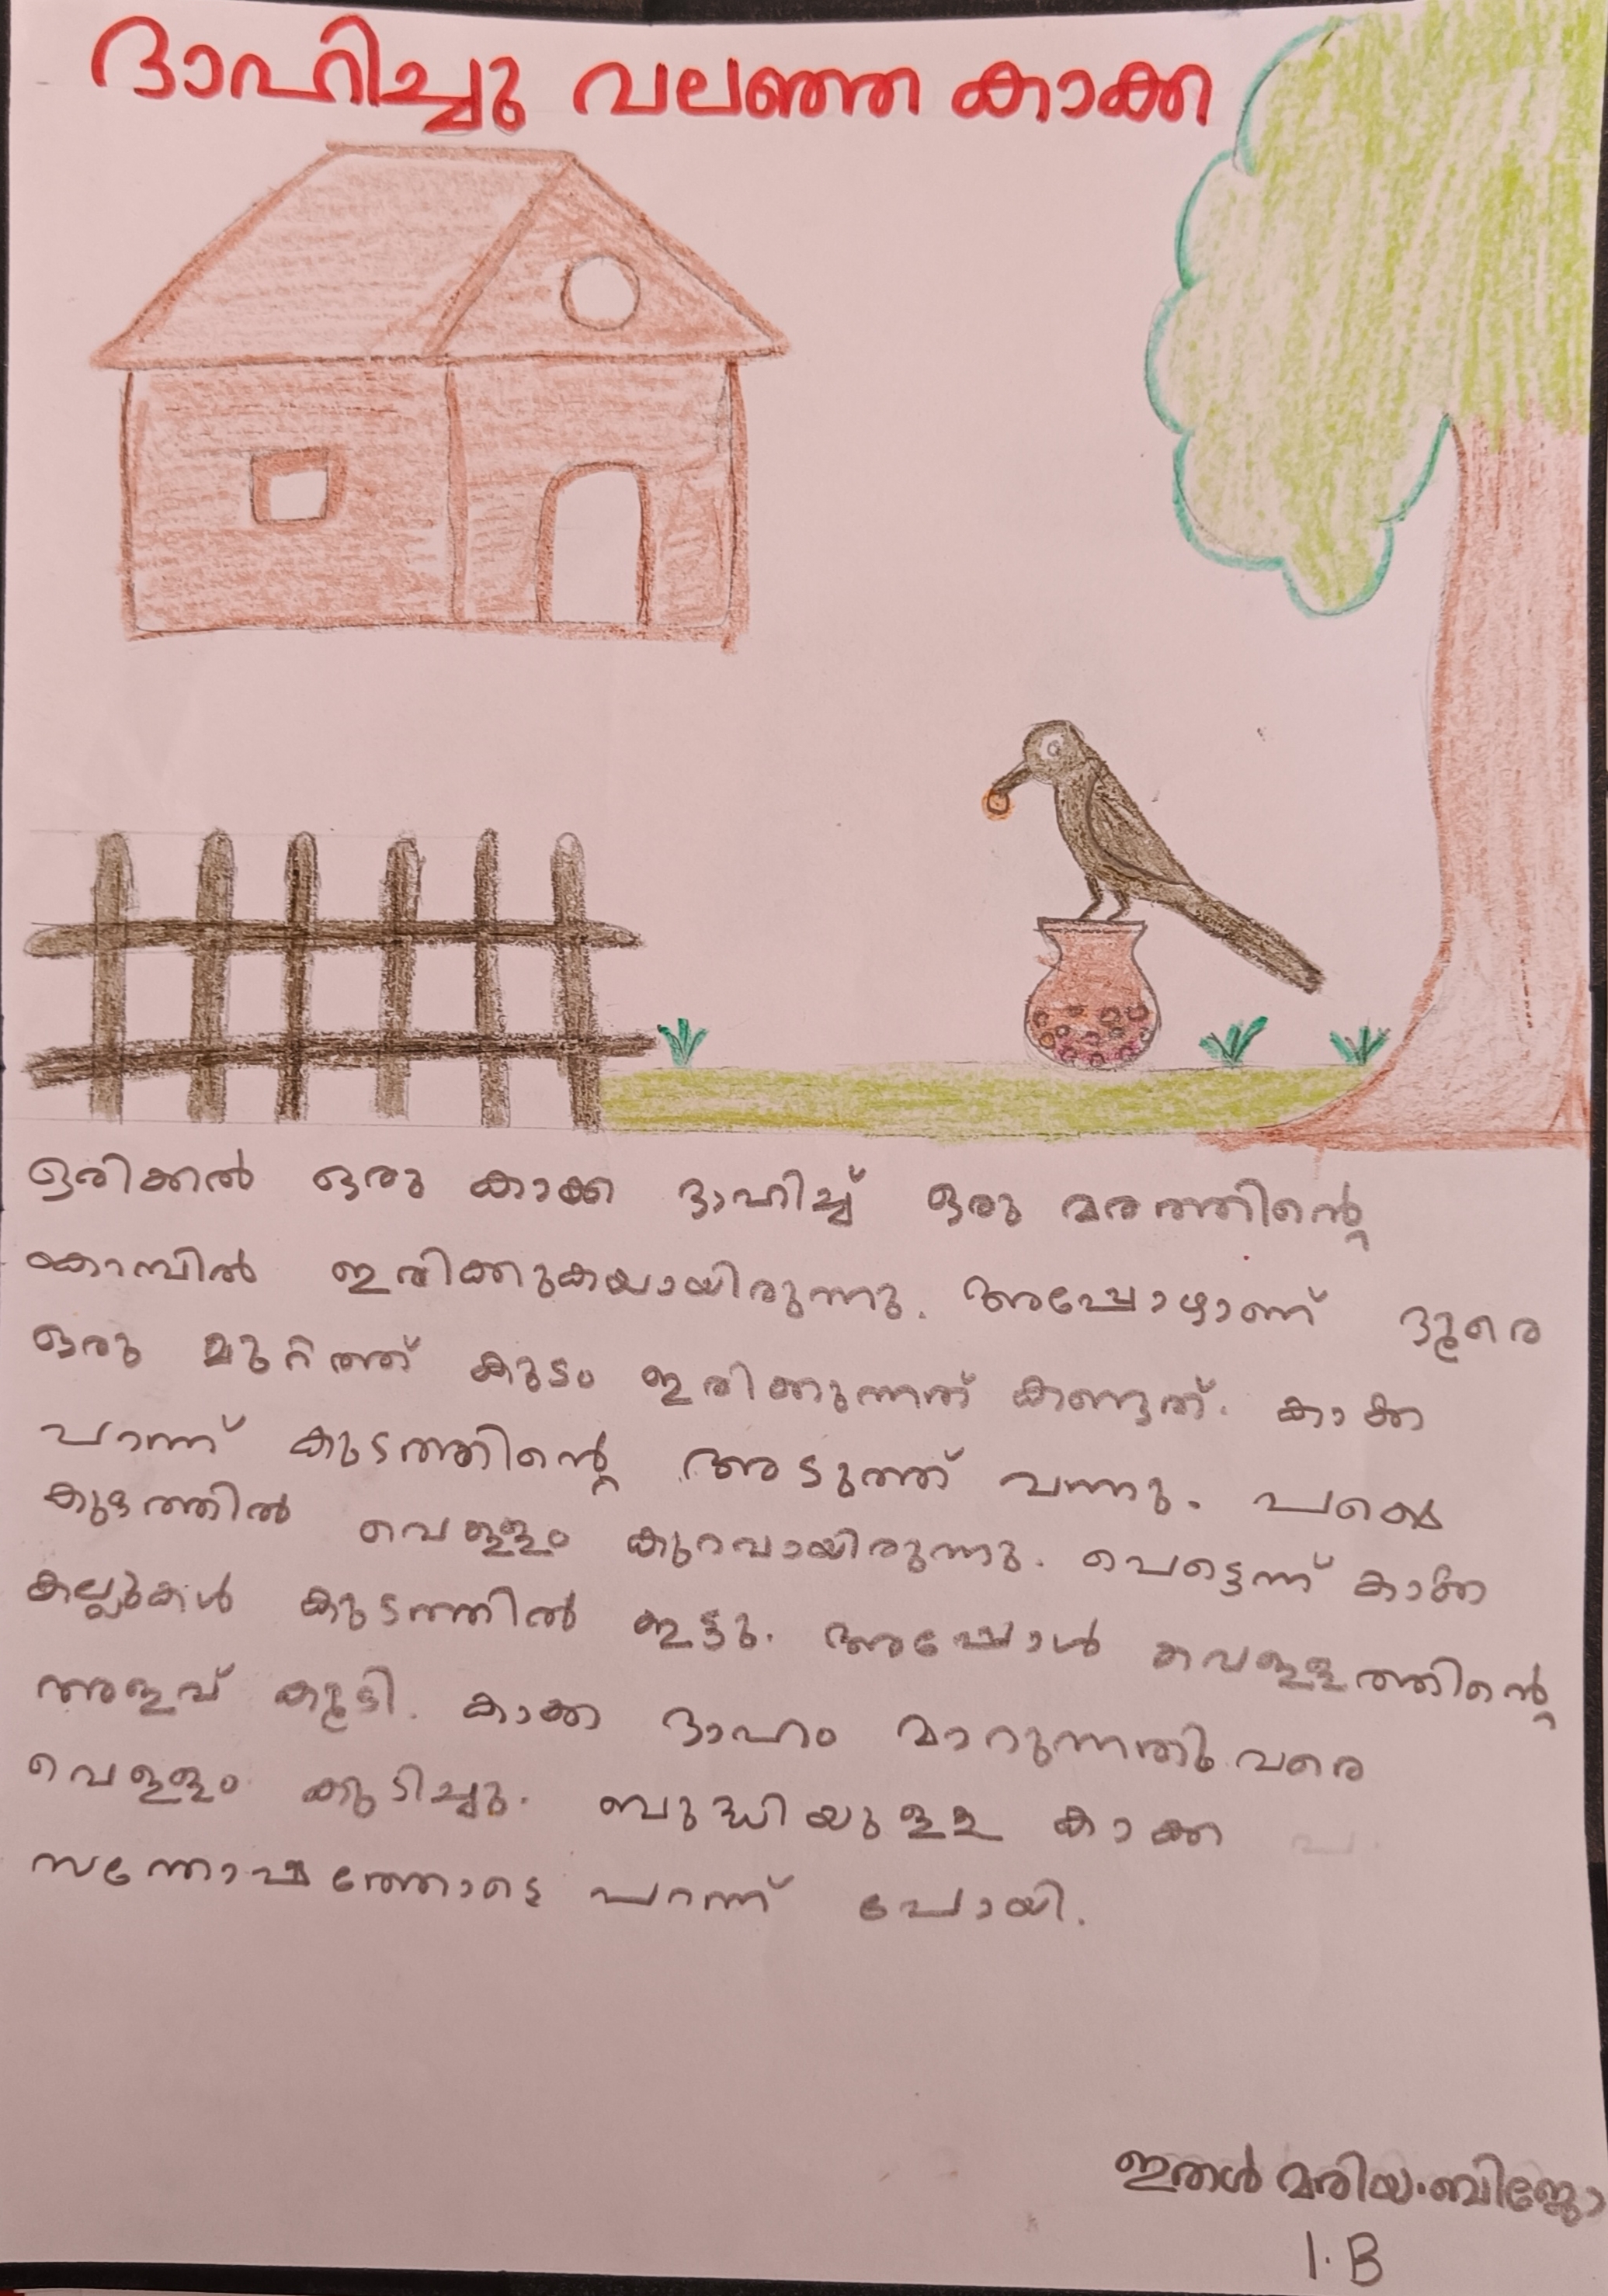 ദാഹിച്ചു വലഞ്ഞ കാക്ക
ഒരിക്കൽ ഒരു കാക്ക ദാഹിച്ച് ഒരു മരത്തിന്റെ
കൊമ്പിൽ ഇരിക്കുകയായിരുന്നു. അപ്പോഴാണ് ദൂരെ
ഒരു മുറ്റത്ത് കുടം ഇരിക്കുന്നത് കണ്ടത്. കാക്ക
പറന്ന് കുടത്തിന്റെ അടുത്ത് വന്നു. പക്ഷെ
കുടത്തിൽ വെള്ളം കുറവായിരുന്നു. പെട്ടെന്ന് കാക്ക
കല്ലുകൾ കുടത്തിൽ ഇട്ടു. അപ്പോൾ വെള്ളത്തിന്റെ
അളവ് കൂടി. കാക്ക ദാഹം മാറുന്നതു വരെ
വെള്ളം കുടിച്ചു. ബുദ്ധിയുള്ള കാക്ക
സന്തോഷത്തോടെ പറന്ന് പോയി.
ഇതൾ മരിയ.ബിജോ
1.B